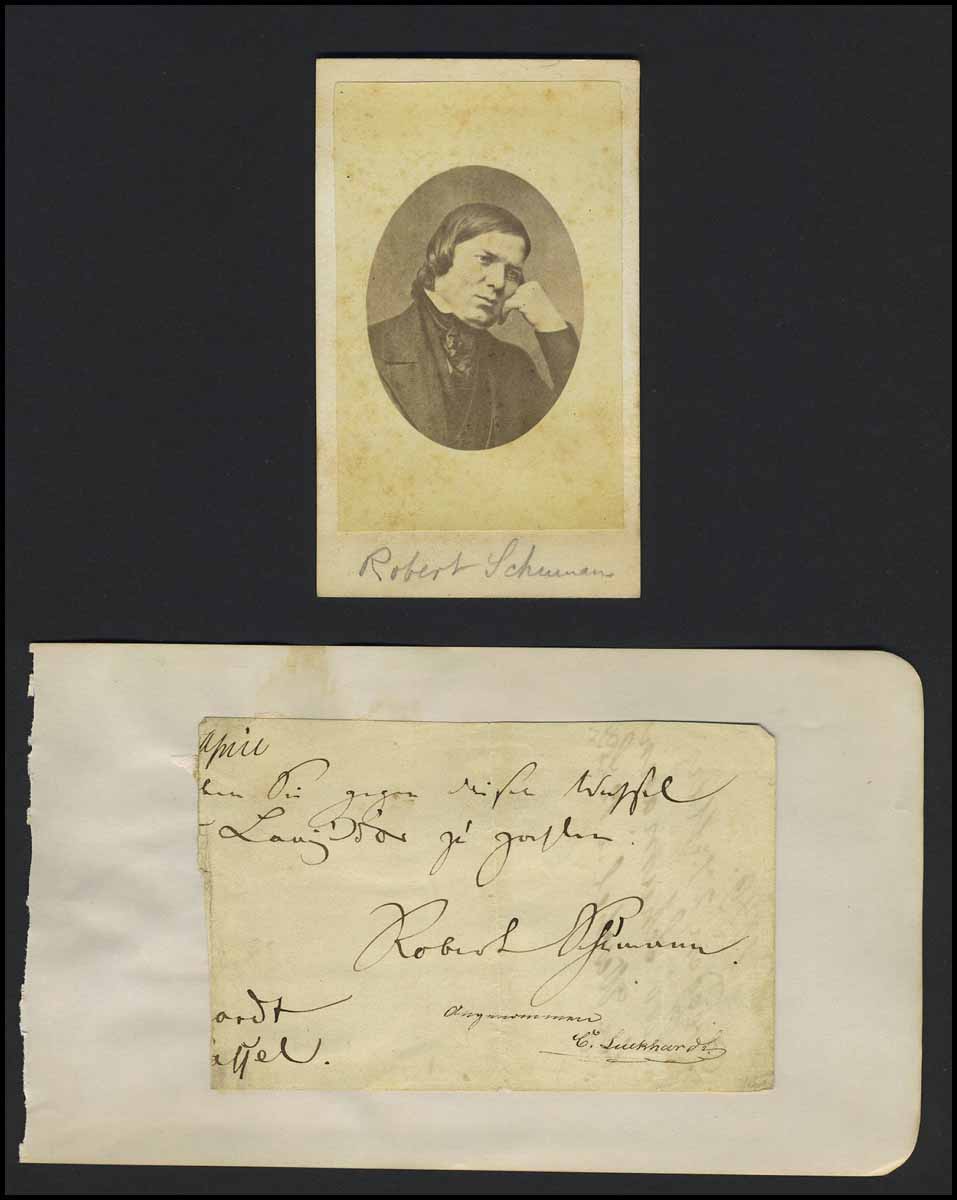 Robert Schumann
April
ben Sie gegen diesen Wechsel
Louisd'or zu zahlen.
Robert Schumann.
Angenommen
C. Luckhardt.
ardt
assel.